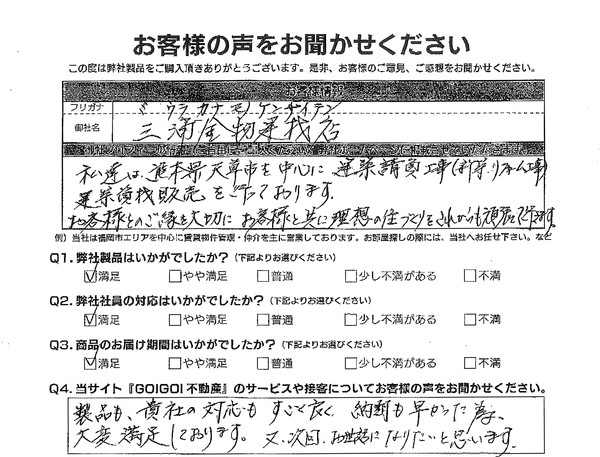 お客様の声をお聞かせください
この度は弊社製品をご購入頂きありがとうございます。是非、お客様のご意見、ご感想をお聞かせください。
お客様情報
フリガナ ミウラカナモノケンザイテン
御社名 三浦金物建材店
私達は、熊本県天草市を中心に建築請負工事(新築、リフォーム工事)
建築資材販売を行っております。
お客様とのご縁を大切にお客様と共に理想の住づくりをこれからも頑張って行きます。
例）当社は福岡市エリアを中心に賃貸物件管理・仲介を主に営業しております。お部屋探しの際には、当社へお任せ下さい。など
Q1. 弊社製品はいかがでしたか？（下記よりお選びください）
満足 やや満足 普通 少し不満がある 不満
Q2. 弊社社員の対応はいかがでしたか？（下記よりお選びください）
満足 やや満足 普通 少し不満がある 不満
Q3. 商品のお届け期間はいかがでしたか？（下記よりお選びください）
満足 やや満足 普通 少し不満がある 不満
Q4. 当サイト『GO!GO! 不動産』のサービスや接客についてお客様の声をお聞かせください。
製品も、貴社の対応もすごく良く、納期も早かった為、
大変満足しております。又、次回、お世話になりたいと思います。